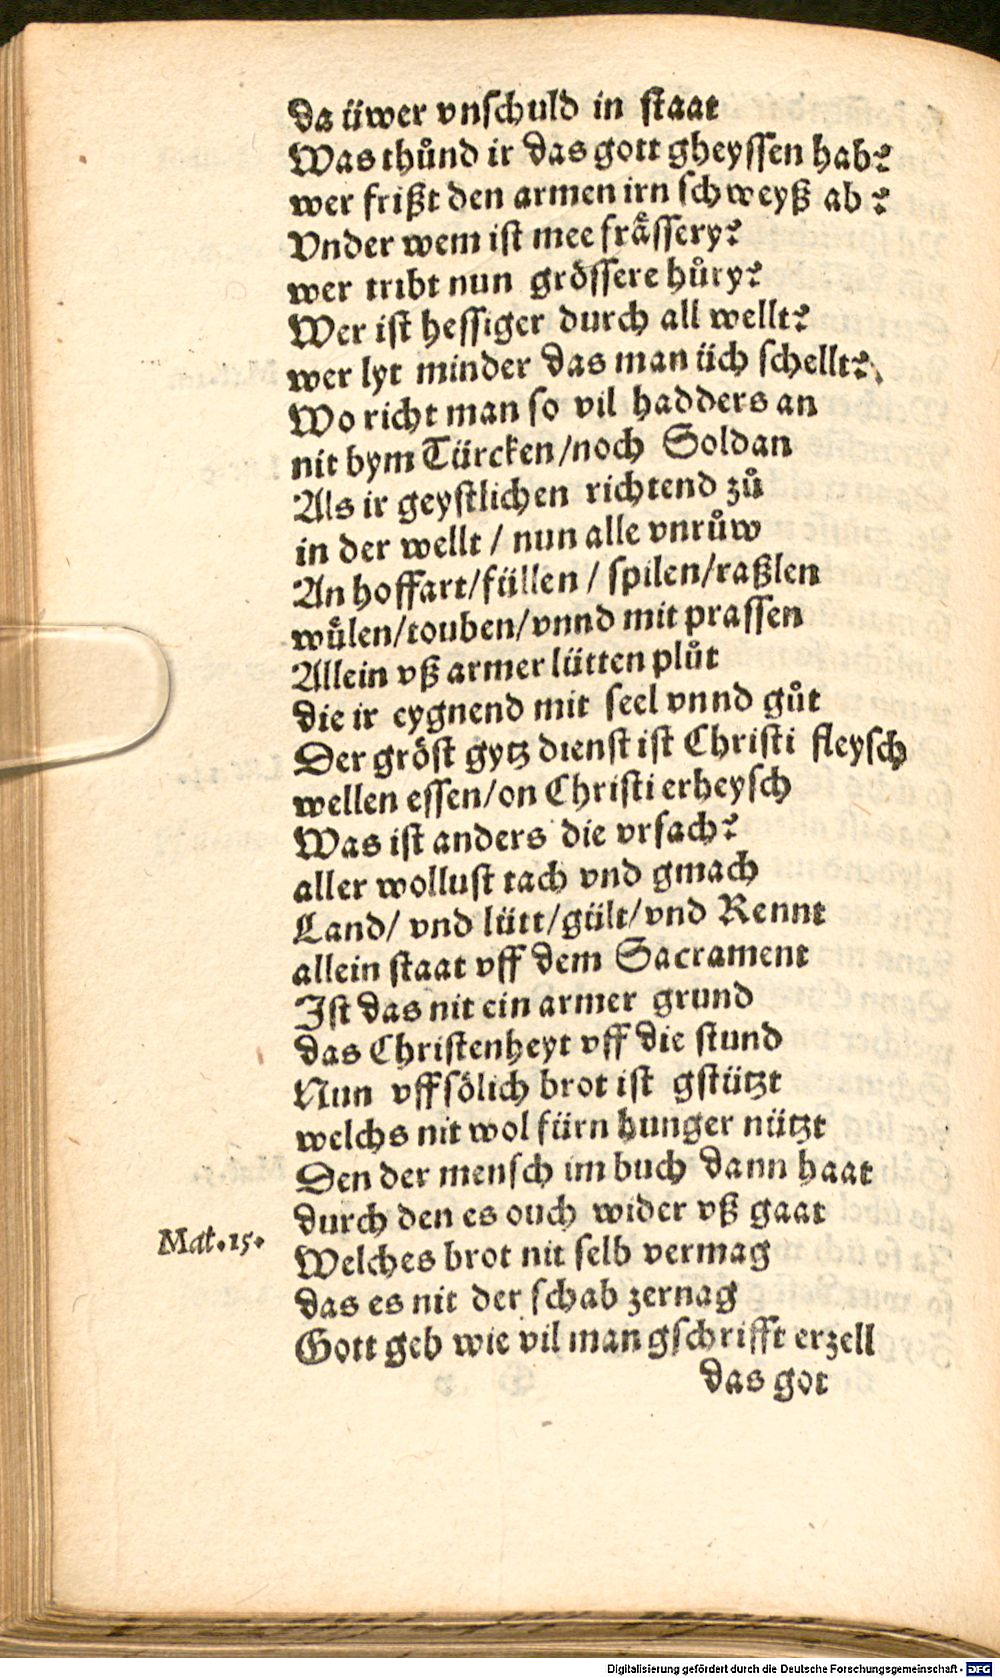 da üwer vnſchuld in ſtaat
Was thůnd ir das gott gheyſſen hab?
wer frißt den armen irn ſchweyß ab?
Vnder wem iſt mee fråſſery?
wer tribt nun gröſſere hůry?
Wer iſt heſſiger durch all wellt?
wer lyt minder das man üch ſchellt?
Wo richt man ſo vil hadders an
nit bym Türcken/noch Soldan
Als ir geyſtlichen richtend zů
in der wellt / nun alle vnrůw
An hoffart/füllen / ſpilen/raßlen
wůlen/touben/vnnd mit praſſen
Allein vß armer lütten plůt
die ir eygnend mit ſeel vnnd gůt
Der gröſt gytz dienſt iſt Chriſti fleyſch
wellen eſſen/on Chriſti erheyſch
Was iſt anders die vrſach?
aller wolluſt tach vnd gmach
Land/ vnd lütt/gült/vnd Rennt
allein ſtaat vff dem Sacrament
Iſt das nit ein armer grund
das Chriſtenheyt vff die ſtund
Nun vff ſölich brot iſt gſtützt
welchs nit wol fürn hunger nützt
Den der menſch im buch dann haat
durch den es ouch wider vß gaat
Mat.15.
Welches brot nit ſelb vermag
das es nit der ſchab zernag
Gott geb wie vil man gſchrifft erzell
das got
Digitalisierung gefördert durch die Deutsche Forschungsgemeinschaft - DFG